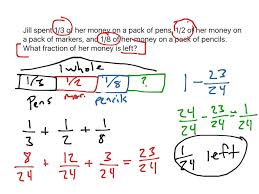 Jill spent 1/3 of her money on a pack of pens, 1/2 of her money on
a pack of markers, and 1/8 of her money on a pack of pencils.
What fraction of her money is left?
1 whole
1/3 1/2 1/8 ?
Pens mar. pencils
1/3 + 1/2 + 1/8
8/24 + 12/24 + 3/24 = 23/24
1 - 23/24
24/24 - 23/24 = 1/24
1/24 left